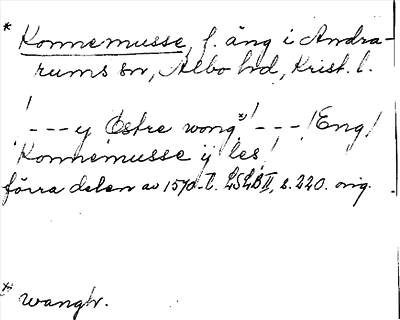 * Konnemusse, f. äng i Andra-
rums sn, Albo hd, Krist. l.
! - - - y Östre wong*! - - - ! Eng!
Konnemusse ij les !
förra delen av 1570-t. LSLB II, s. 220. orig.
* wangh.